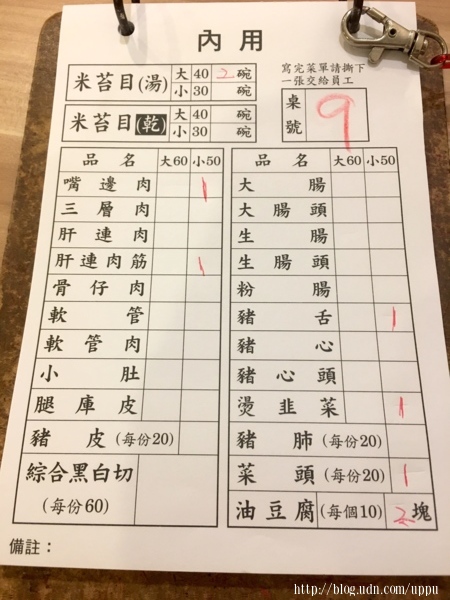 內用
米苔目(湯) 大 40 2碗
小 30 碗
米苔目(乾) 大 40 碗
小 30 碗
寫完菜單請撕下
一張交給員工
桌號 9
品名 大60 小50
嘴邊肉 1
三層肉
肝連肉
肝連肉筋 1
骨仔肉
軟管
軟管肉
小肚
腿庫皮
豬皮(每份20)
綜合黑白切
(每份60)
品名 大60 小50
大腸
大腸頭
生腸
生腸頭
粉腸
豬舌 1
豬心
豬心頭
燙韭菜 1
豬肺(每份20)
菜頭(每份20) 1
油豆腐(每個10) 2塊
備註：
http://blog.udn.com/uppu